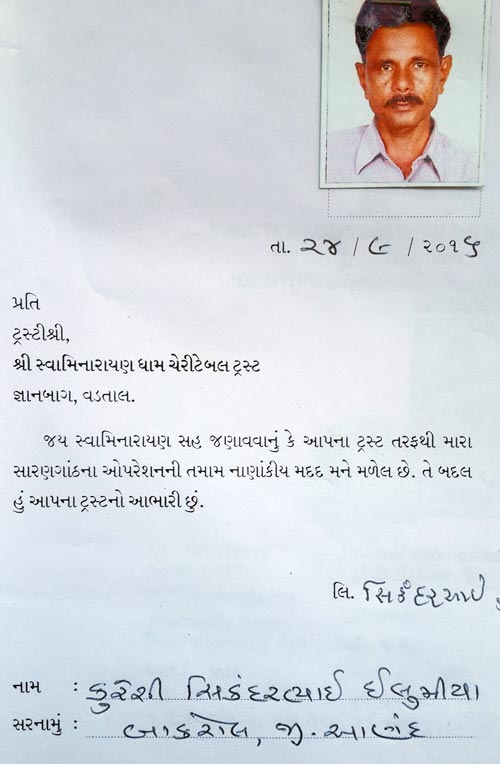 તા. ૨૪ / ૯ / ૨૦૧૬
પ્રતિ
ટ્રસ્ટીશ્રી,
શ્રી સ્વામિનારાયણ ધામ ચેરીટેબલ ટ્રસ્ટ
જ્ઞાનબાગ, વડતાલ.
જય સ્વામિનારાયણ સહ જણાવવાનું કે આપના ટ્રસ્ટ તરફથી મારા
સારણગાંઠના ઓપરેશનની તમામ નાણાંકીય મદદ મને મળેલ છે. તે બદલ
હું આપના ટ્રસ્ટનો આભારી છું.
લિ. સિકંદરભાઈ
નામ : કુરેશી સિકંદરભાઈ ઈલુમીયા
સરનામું : બાકરોલ, જી. આણંદ